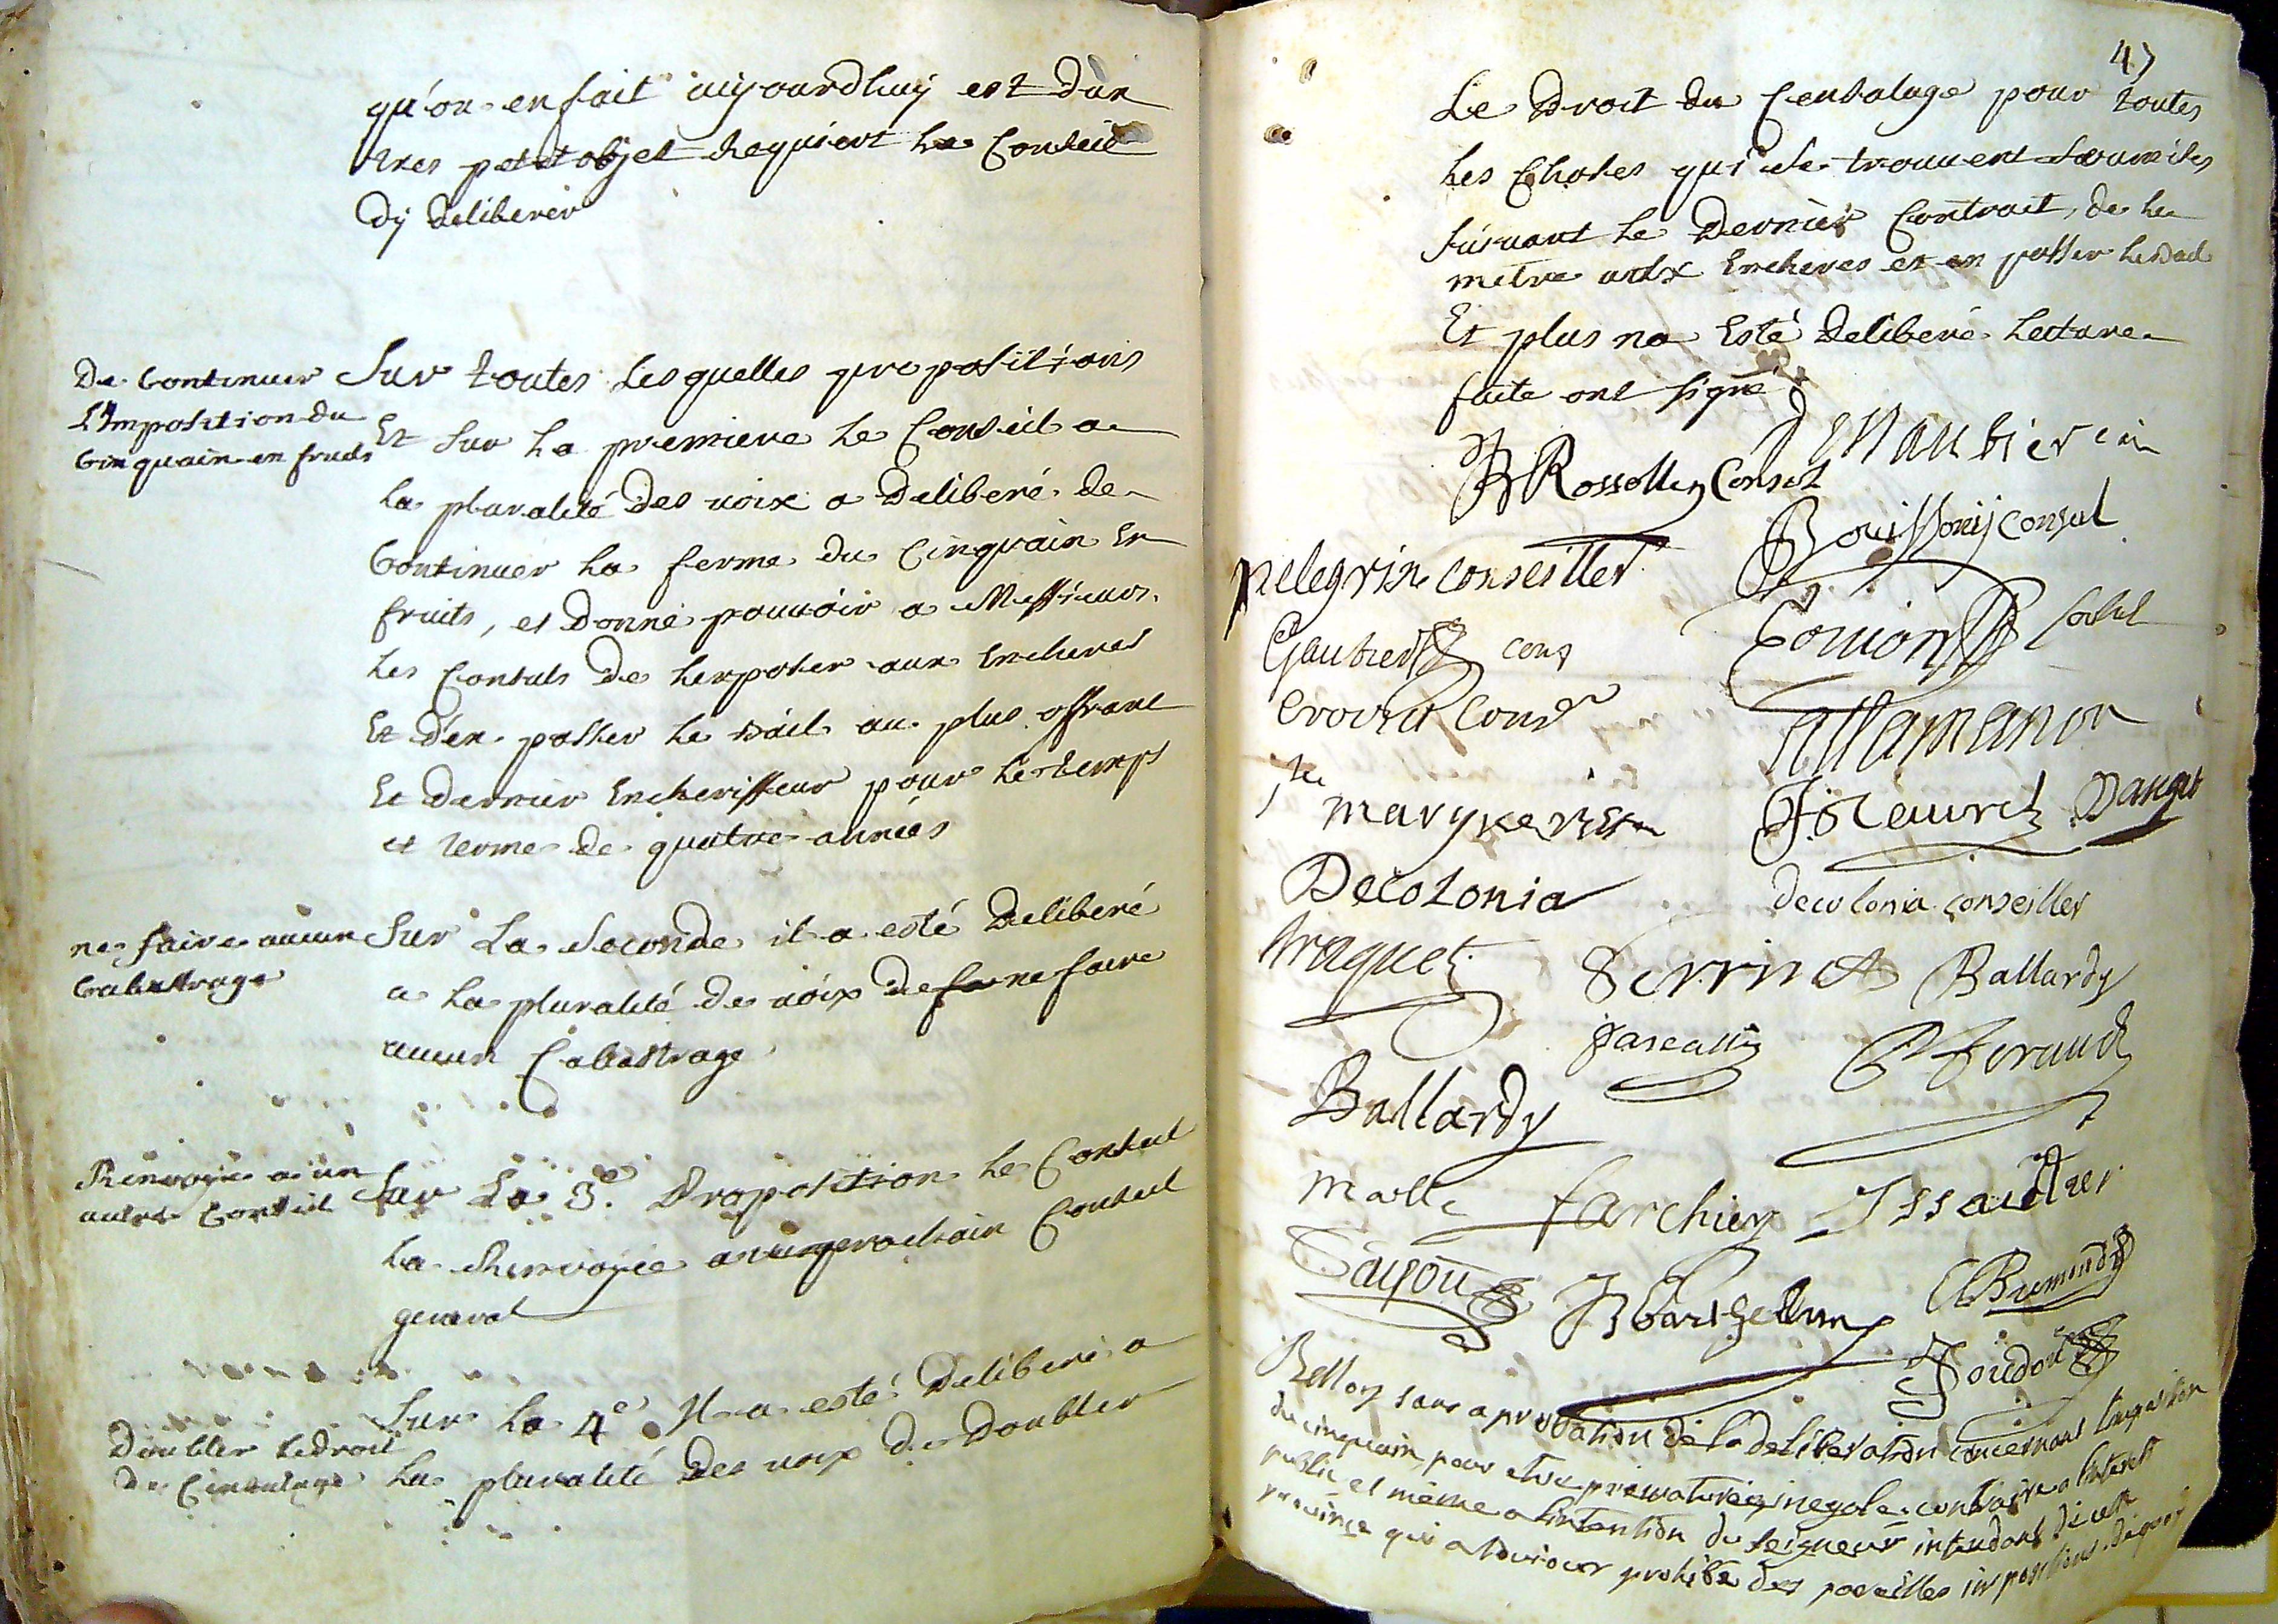 qu'on en fait aujourdhuy est dun
tres petit objet Requiert le Conseil
dÿ deliberer
De Continuer
L'Imposition du
Cinquain en fruits
Sur toutes Lesquelles propositions
Et Sur La premiere Le Conseil a
La pluralité des voix a deliberé de
Continuer La ferme du Cinquain En
fruits, et donné pouvoir a Messieurs
Les Consuls de Lexposer aux Encheres
Et d'en passer Le Bail au plus offrant
Et dernier Encherisseur pour Le temps
et terme de quatre années
ne faire aucun
Cabastrage
Sur La Seconde il a esté deliberé
a La pluralité de voix de ne faire
aucun Cabastrage
Renvoyée a un
autre Conseil
Sur La 3e. Proposition Le Conseil
La Renvoyée au prochain Conseil
general
Doubler Le droit
de Censalage
Sur La 4e Il a esté deliberé a
La pluralité des voix de Doubler
47
Le Droit du Censalage pour toutes
Les Choses qui se trouvent Soumises
Suivant Le Dernier Contract, de Le
metre aux Encheres et en passer Le Bail
Et plus na Esté Deliberé Lecture
faite ont signé
Maubier
JB Rossollin Consul
Bouissoniÿ consul
pelegrin conseiller
Gautier cons
Allamanon
Decolonia
decolonia conseiller
Ballardy
pascallis
P feraud
Ballardy
Malle
farchier
Issautier
Sayou
JBarthelemy
Bremondy
Joudou
Bellon sans aprobation de la deliberation concernant limposition
du cinquain, pour etre prematurée, inegale, contraire a linterest
public et même a lintention du seigneur intendant de cette
province qui a toujour prohibé des pareilles impositions